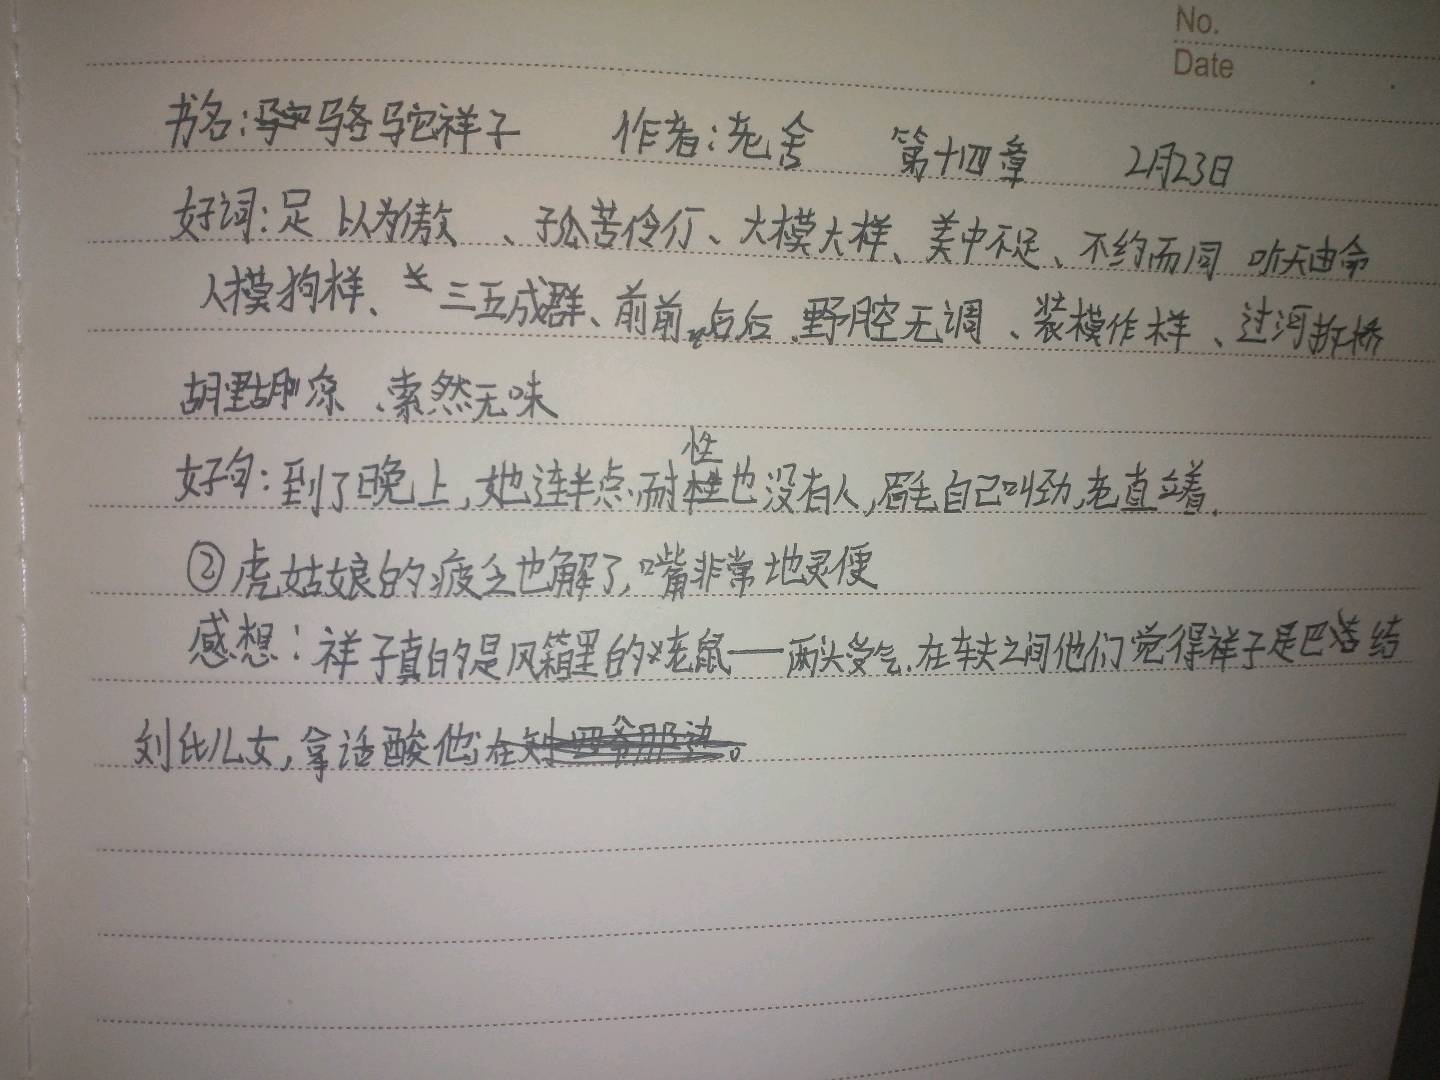 No.
Date
书名:骆驼祥子 作者:老舍 第十四章 2月23日
好词:足以为傲、孤苦伶仃、大模大样、美中不足、不约而同 听天由命
人模狗样、三五成群、前前后后、野腔无调、装模作样、过河拆桥
胡 、索然无味
性
好句:到了晚上,她连半点耐也没有人,眉毛自己叫劲,老直立着.
②虎姑娘的疲乏也解了,嘴非常地灵便
感想:祥子真的是风箱里的老鼠——两头受气.在车夫之间他们觉得祥子是巴结
刘氏儿女,拿话酸他;。